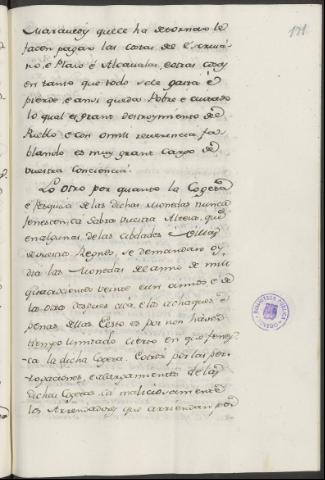 131
Maravedis que ce ha de tornar e le
facen pagar las cosas de el escriva-
no, e Plaço e Alcavalas, e otras cosas
en tanto que todo se le gasta e
pierde e ansi queda Pobre e cuitado
lo qual es grant destroymiento de
Pueblo e con omill reverencia fa-
blando es muy grant cargo de
vuestra conciencia.
Lo otro por quanto la Cogeta
e pesquisa de las dichas Monedas nunca
fenescen ca Sabra vuestra Alteza que
en algunas de las cibdades e Villas
de vuestros Regnos se demandan oy
dia las Monedas del anno de mill
quatrocientos veinte e un annos e de
la otra despues acá, e las achaques e
penas dellas Et esto es por non haver
tiempo limitado cierto en que fenes-
ca la dicha Cogeta. Cotrosi por las per-
rogaciones, e alargamientos de las
dichas Cogetas ca maliciosamente
los Arrendadores que arriendan por
BIBLIOTECA PUBLICA
OVIEDO